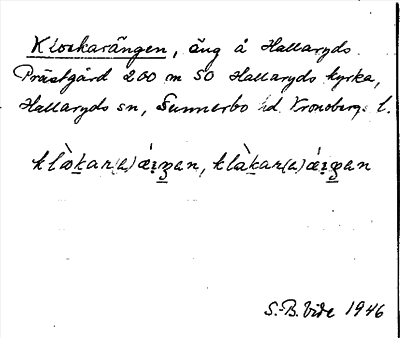 Klockarängen, äng å Hallaryds
Prästgård 200 m SO Hallaryds kyrka,
Hallaryds sn, Sunnerbo hd Kronobergs l.
S.-B. Vide 1946